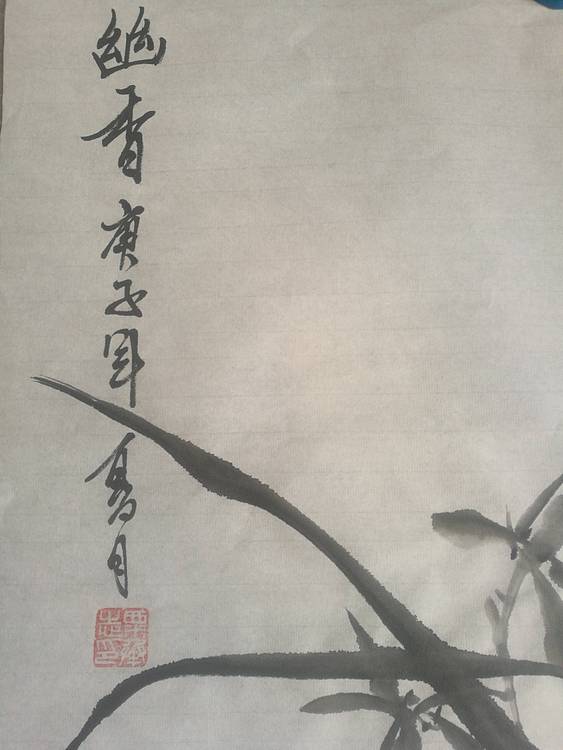 幽香 庚子年 夏月